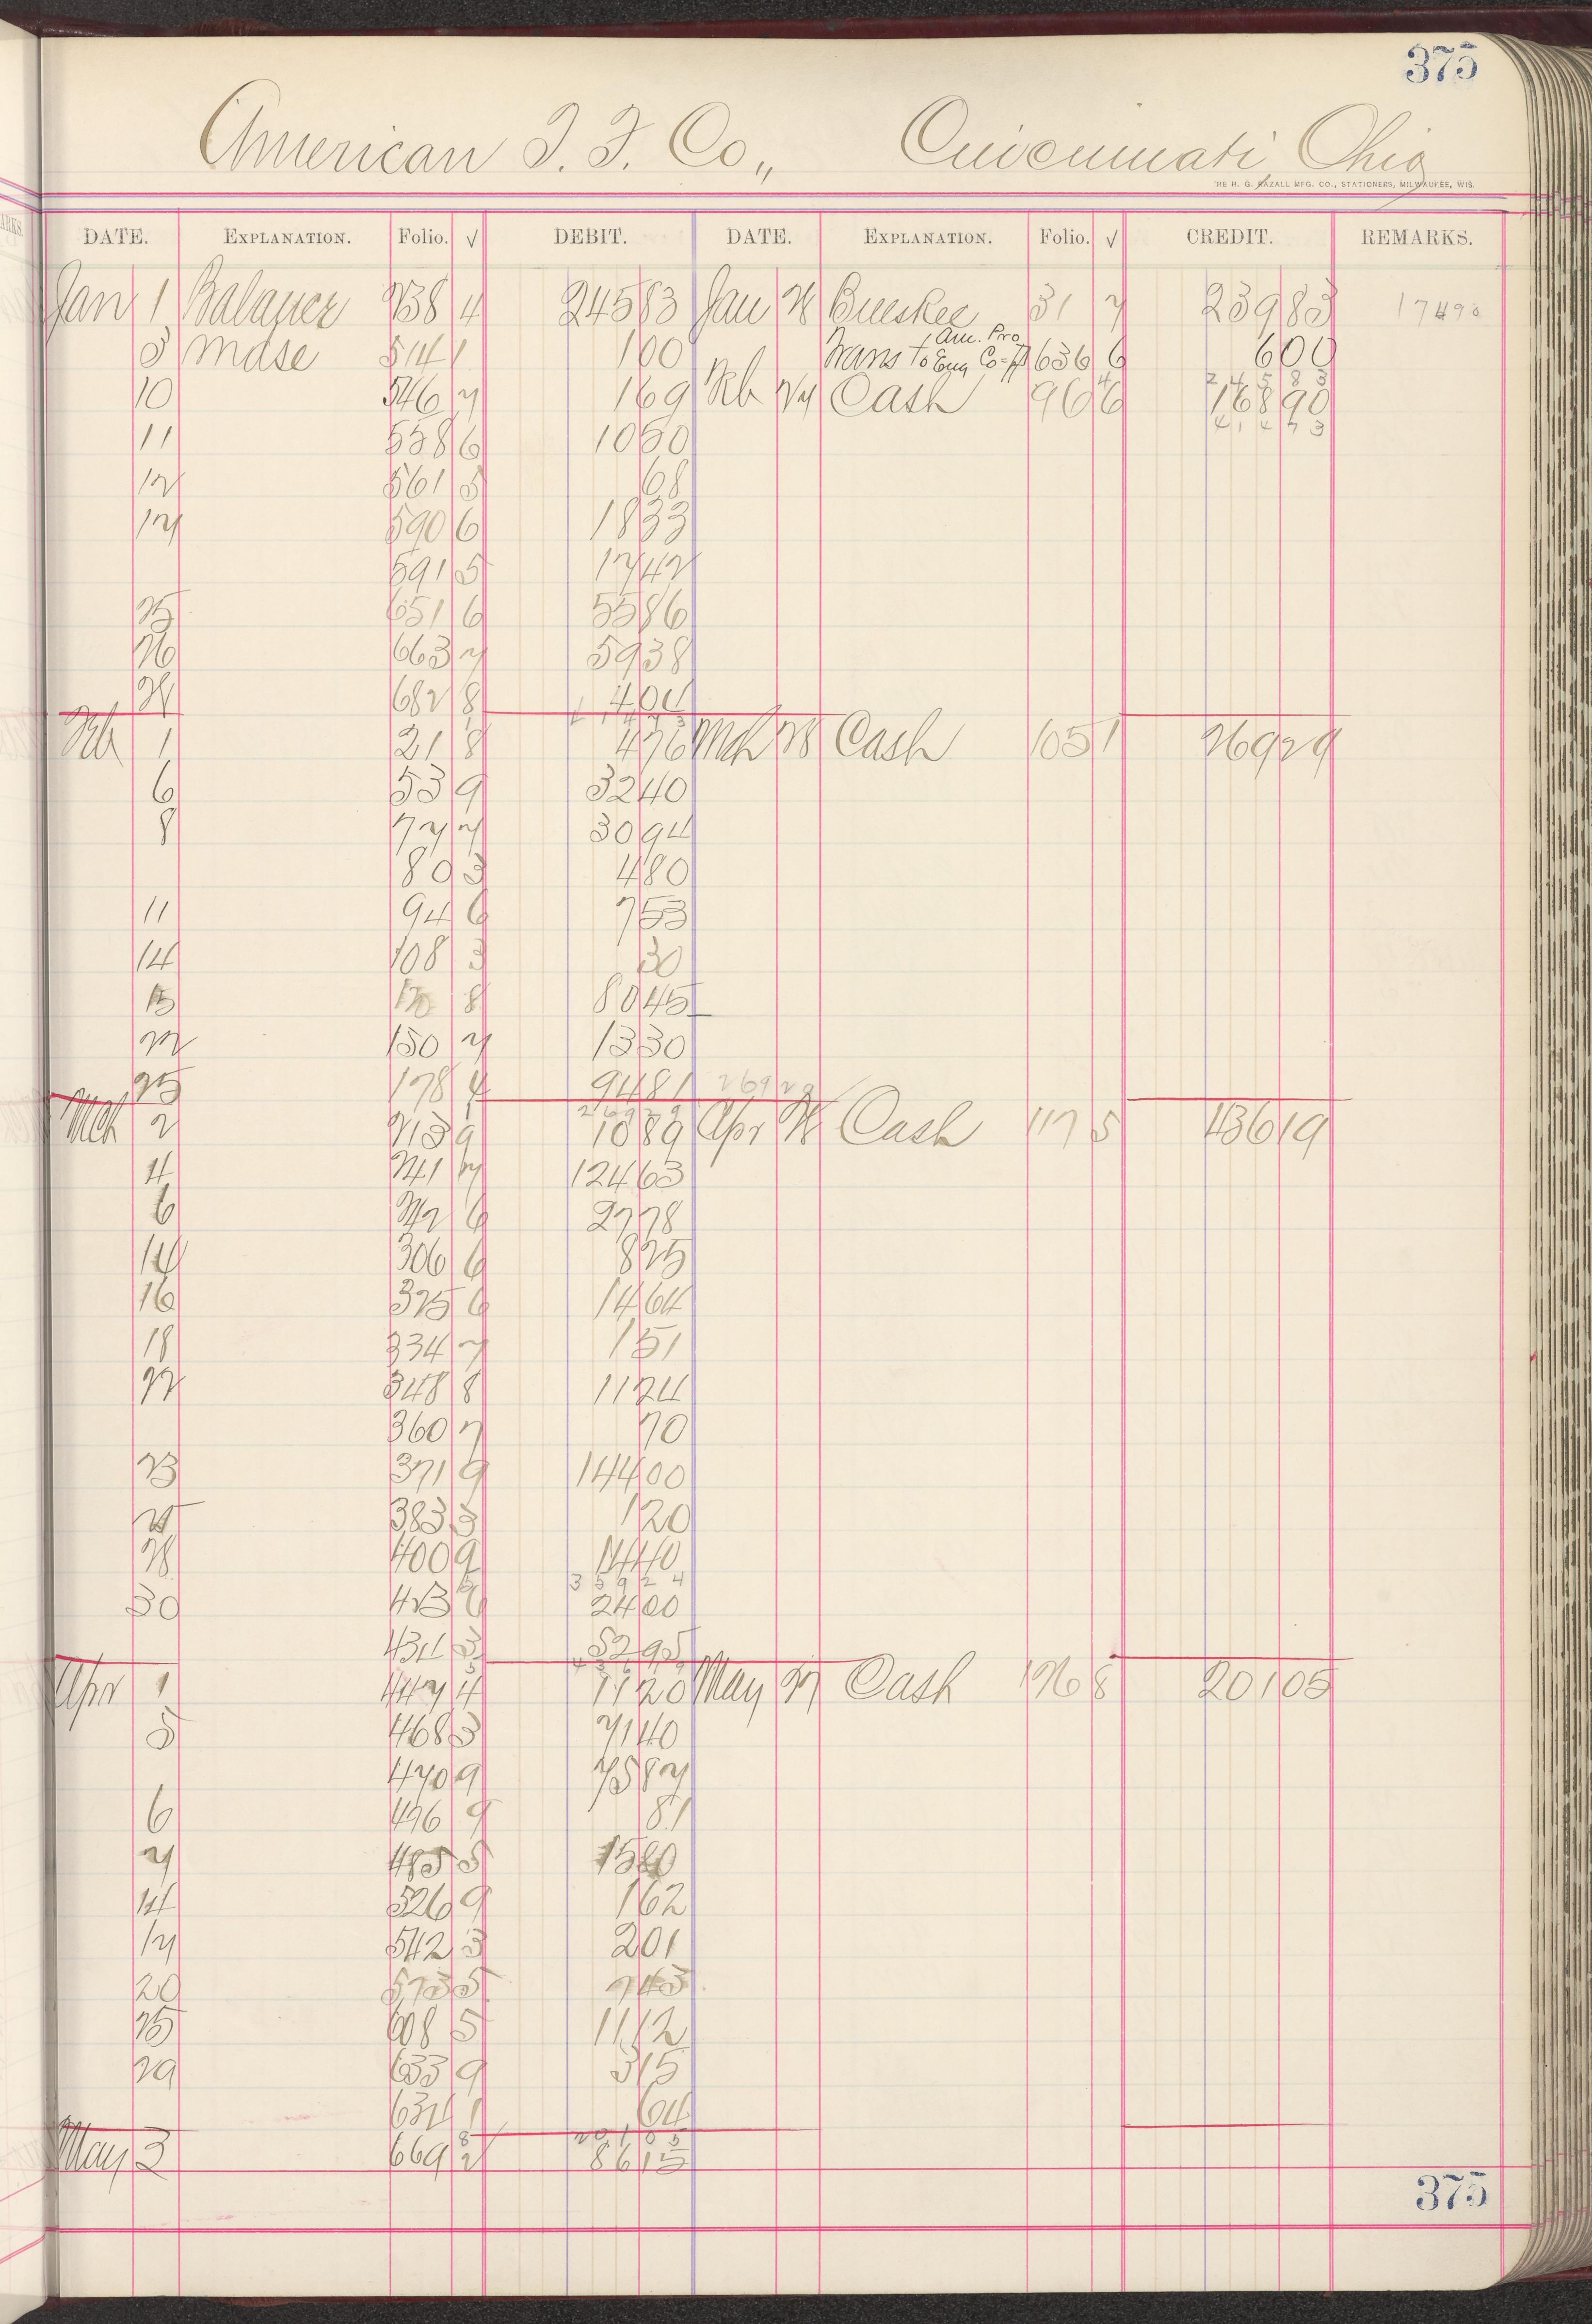 375
American T. T. Co., Cincinnati, Ohio
THE H. G. RAZALL MFG. CO., STATIONERS, MILWAUKEE, WIS.
DATE. EXPLANATION. Folio. √ DEBIT. DATE. EXPLANATION. Folio. √ CREDIT. REMARKS.
Jan 1 Balance 24583 Jan 31 23983 17490
3 Mdse 514 1 100 Trans to Am. Pro Eng Co 636 6 600
10 546 7 169 Feb 24 Cash 96 6 16890
24583
41473
11 558 6 1050
12 561 5 68
17 590 6 1833
591 5 1742
25 651 6 5586
26 663 7 5938
682 8 404
Feb 1 21 8 476 Mch 28 Cash 105 1 26929
6 53 9 3240
8 72 7 3094
80 3 480
11 94 6 753
14 108 3 30
15 8 8045
22 150 7 1330
25 178 4 9481 26929
26929
Mch 2 213 9 1089 Apr Cash 117 5 43619
4 241 7 12463
6 6 2778
14 306 6 875
16 325 6 1464
18 334 7 151
22 348 8 1124
360 7 70
23 371 9 14400
383 3 120
28 400 9 1440
35924
30 2400
431 3 5295
Apr 1 447 4 1120 May 27 Cash 126 8 20105
5 468 3 7140
470 9 7587
6 476 9 81
7 485 5
14 526 9 162
17 542 3 201
20 573 5
25 608 5 1112
29 633 9 315
634 1 64
20105
May 3 669 8615
375